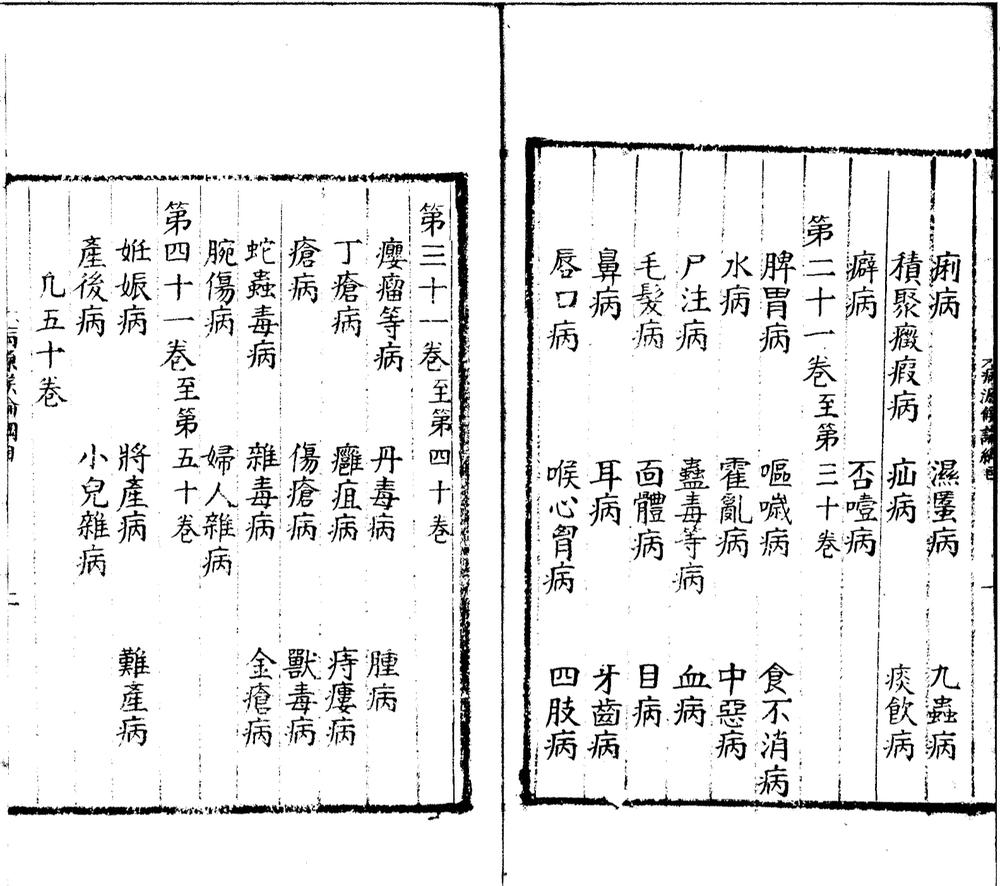 痢病　濕䘌病　九蟲病
積聚癥瘕病　疝病　痰飲病
癖病　否噎病
第二十一卷至第三十卷
脾胃病　嘔噦病　食不消病
水病　霍亂病　中惡病
尸注病　蠱毒等病　血病
毛髮病　面體病　目病
鼻病　耳病　牙齒病
唇口病　喉心胷病　四肢病
第三十一卷至第四十卷
癭瘤等病　丹毒病　腫病
丁瘡病　癰疽病　痔瘻病
瘡病　傷瘡病　獸毒病
蛇蟲毒病　雜毒病　金瘡病
腕傷病　婦人雜病
第四十一卷至第五十卷
姙娠病　將產病　難產病
產後病　小兒雜病
凡五十卷
二